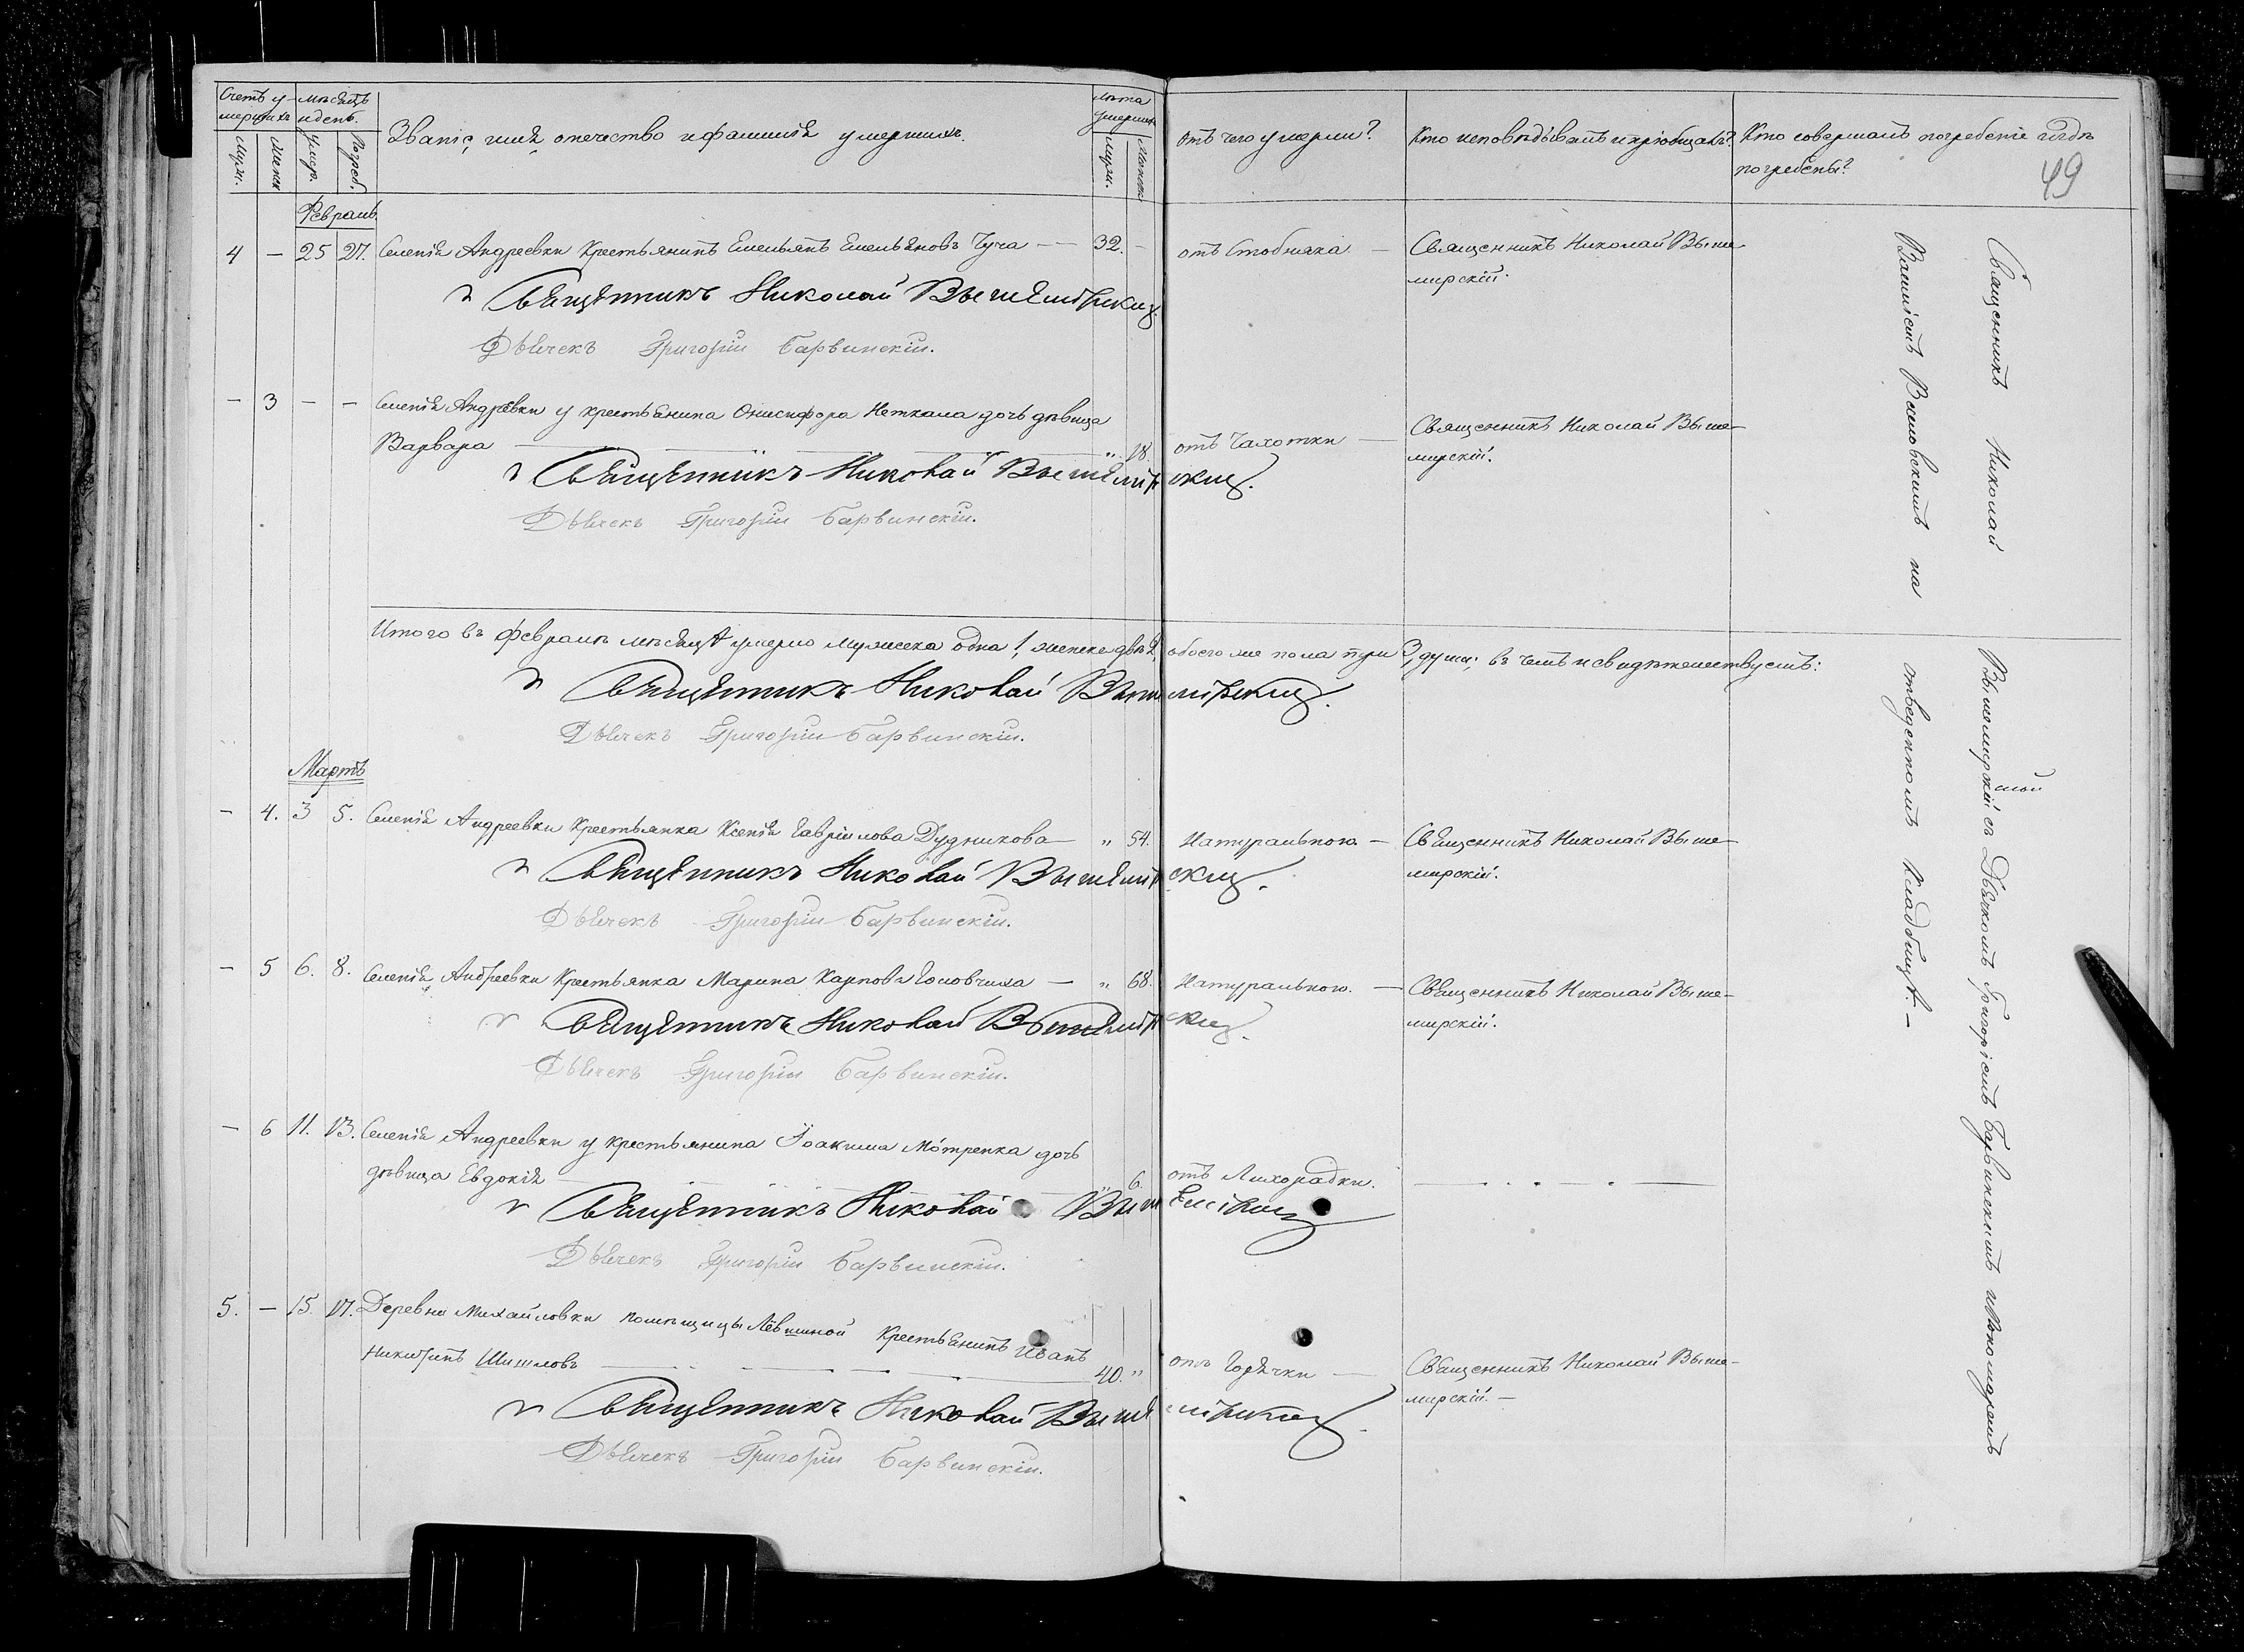 Счетъ у-
мершихъ
Муж.
Женск
мѣсяцъ
и день.
Умер.
Погреб.
Званіе, имя, отечество и фамилія умершихъ.
лѣта
умершихъ
Муж.
Женск
отъ чего умерли?
Кто исповѣдывалъ и пріобщалъ?
Кто совершалъ погребеніе и гдѣ
погребены?
49
Февраль.
4 — 25 27. Селенія Андреевки Крестьянинъ Емельянъ Емельяновъ Чуча — 32. — отъ Столбняка. — Священникъ Николай Выше-
мирскій.
Священникъ Николай Вышемірскій.
Дьячекъ Григорій Барвинскій.
— 3 — — Селенія Андреевки у крестьянина Онисифора Неткала дочь дѣвица
Варвара — „ 18. отъ Чахотки — Священникъ Николай Выше-
мирскій.
Священникъ Николай Вышемірскій.
Дьячекъ Григорій Барвинскій.
Итого въ февралѣ мѣсяцѣ умерло мужеска одна 1, женска двѣ 2, обоего же пола три 3, души; въ чемъ и свидѣтельствуемъ:
Священникъ Николай Вышемірскій.
Дьячекъ Григорій Барвинскій.
Мартъ
— 4. 3 5. Селенія Андреевки Крестьянка Ксенія Гавріилова Дудникова — „ 54. Натуральною. — Священникъ Николай Выше-
мирскій.
Священникъ Николай Вышемірскій.
Дьячекъ Григорій Барвинскій.
— 5 6. 8. Селенія Андреевки Крестьянка Марина Карпова Головчиха — „ 68. Натуральною. — Священникъ Николай Выше-
мирскій.
Священникъ Николай Вышемірскій.
Дьячекъ Григорій Барвинскій.
— 6 11. 13. Селенія Андреевки у крестьянина Іоакима Мотренка дочь
дѣвица Евдокія — „ 6. отъ Лихорадки. —
Священникъ Николай Вышемірскій
Дьячекъ Григорій Барвинскій.
5. — 15. 17. Деревни Михайловки помѣщицы Лёвшиной Крестьянинъ Иванъ
Никитинъ Шишловъ — 40. „ отъ Горячки — Священникъ Николай Выше-
мирскій. —
Священникъ Николай Вышемірскій.
Дьячекъ Григорій Барвинскій.
Священникъ Николай Вышемирскій съ Дьячкомъ Григоріемъ Барвинскимъ и Пономаремъ
отведенномъ Кладбищѣ. —